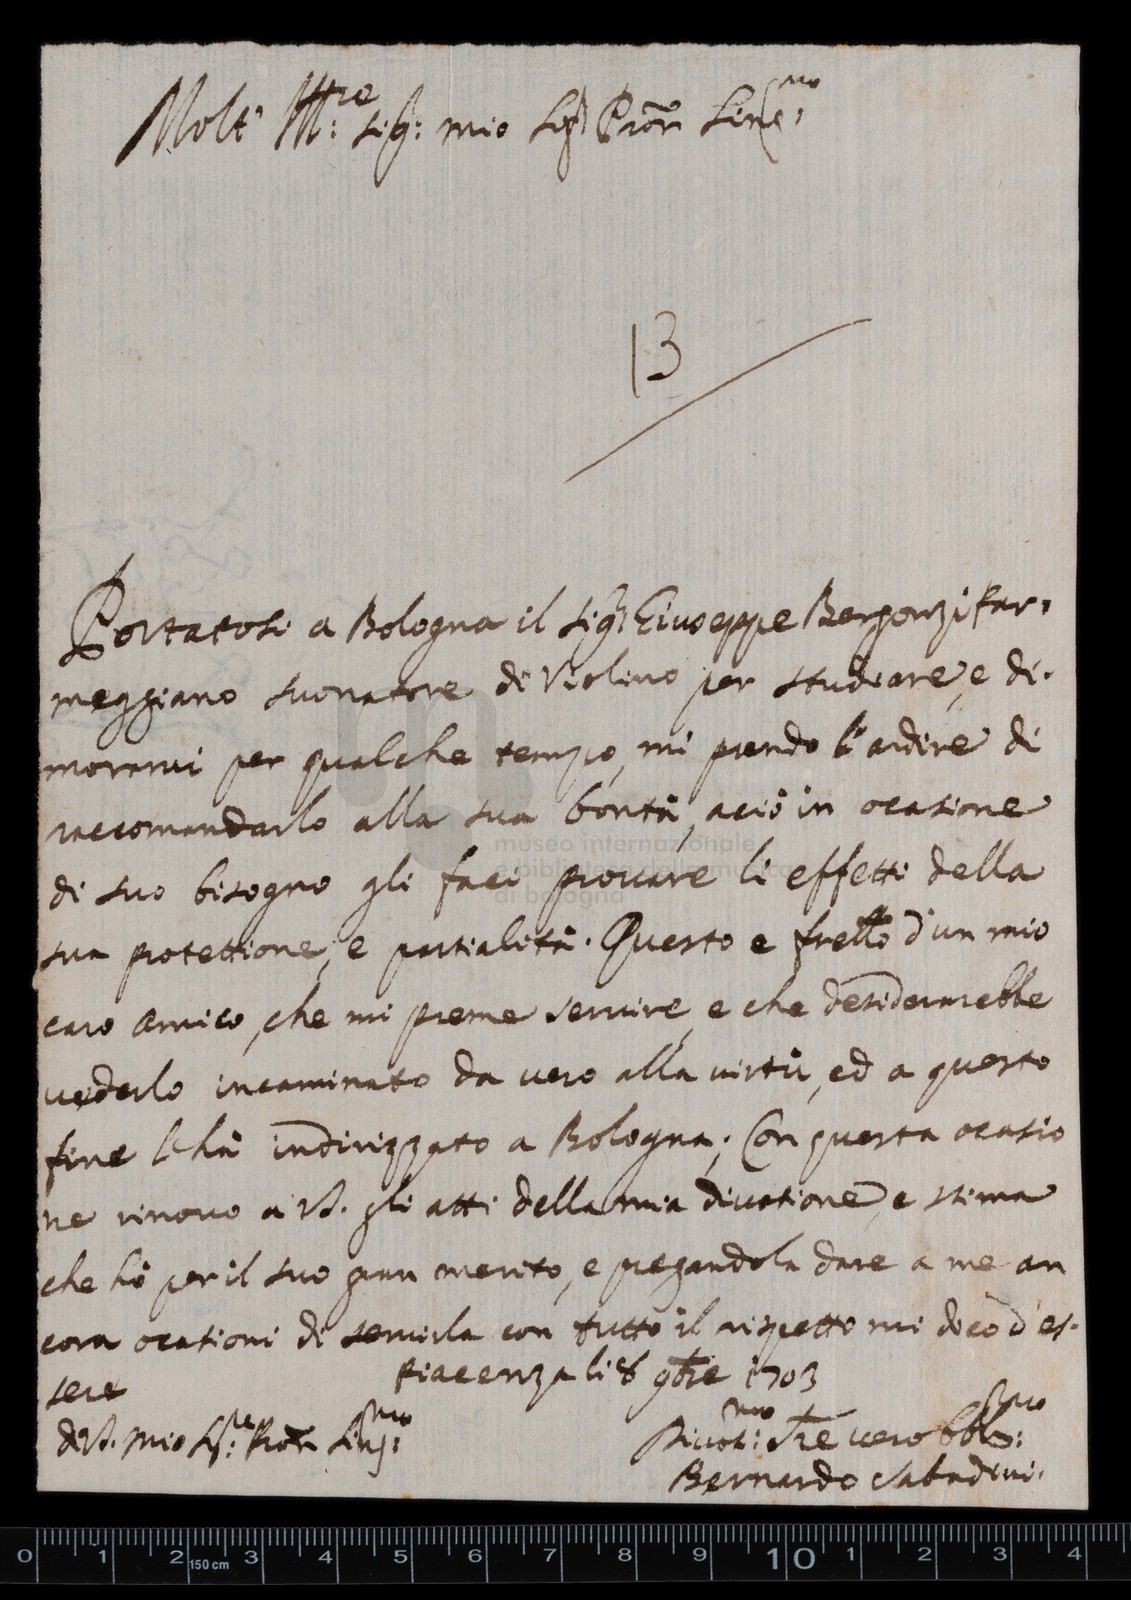 Molt' Ill:re Sig: mio Sig Pron Sing:mo
13
Portatosi a Bologna il Sig: Giuseppe Bergonzi Par=
meggiano suonatore di Violino per studiare, e di=
morarvi per qualche tempo, mi prendo l'ardire di
raccomandarlo alla sua bontà, aciò in ocasione
di suo bisogno gli faci provare li effetti della
sua protettione, e partialità. Questo e frello d'un mio
caro Amico, che mi preme servire, e che desiderarebbe
vederlo incaminato da vero alla virtù, ed a questo
fine l'hà indirizzato a Bologna; Con questa ocasio
ne rinovo a VS. gli atti della mia divotione, e stima
che hò per il suo gran merito, e pregandola dare a me an
cora ocasioni di servirla con tutto il rispetto mi dico d'es=
sere
Piacenza li 8 9bre 1703
di VS. mio Sig:re Pron Sing:mo
Divot:mo Sre vero obblig:mo
Bernardo Sabadini.
museo internazionale
e biblioteca della musica
di bologna
0 1 2 150 cm 3 4 5 6 7 8 9 10 1 2 3 4